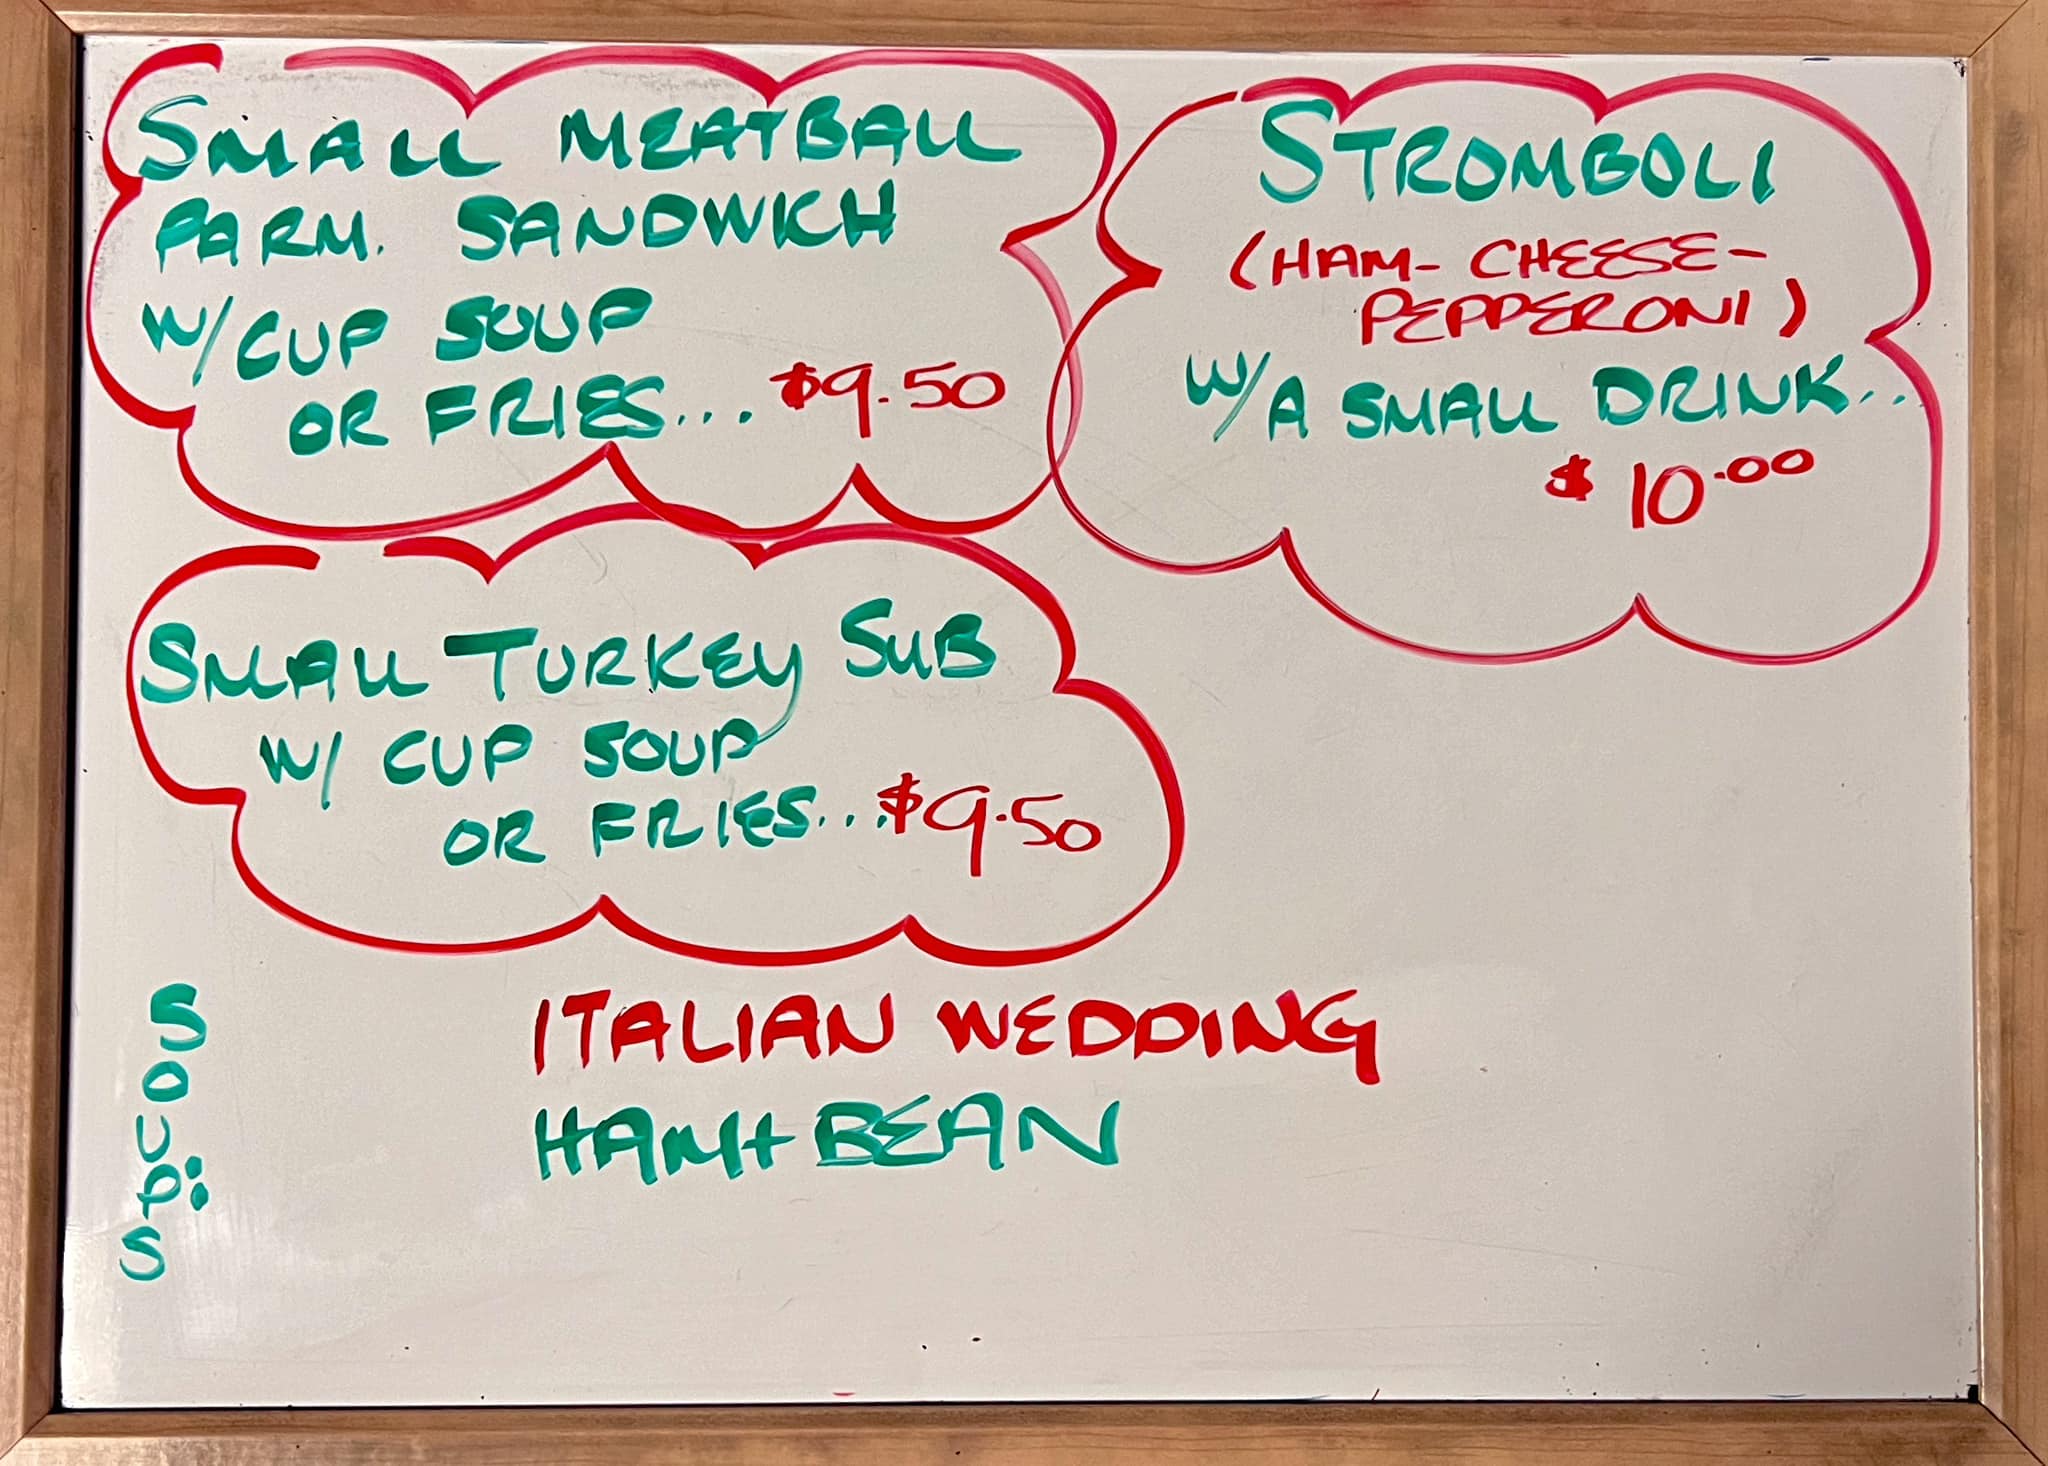 SMALL MEATBALL
PARM. SANDWICH
W/CUP SOUP
OR FRIES... $9.50
STROMBOLI
(HAM- CHEESE-
PEPPERONI)
W/A SMALL DRINK...
$10.00
SMALL TURKEY SUB
W/ CUP SOUP
OR FRIES... $9.50
SOUPS:
ITALIAN WEDDING
HAM+BEAN